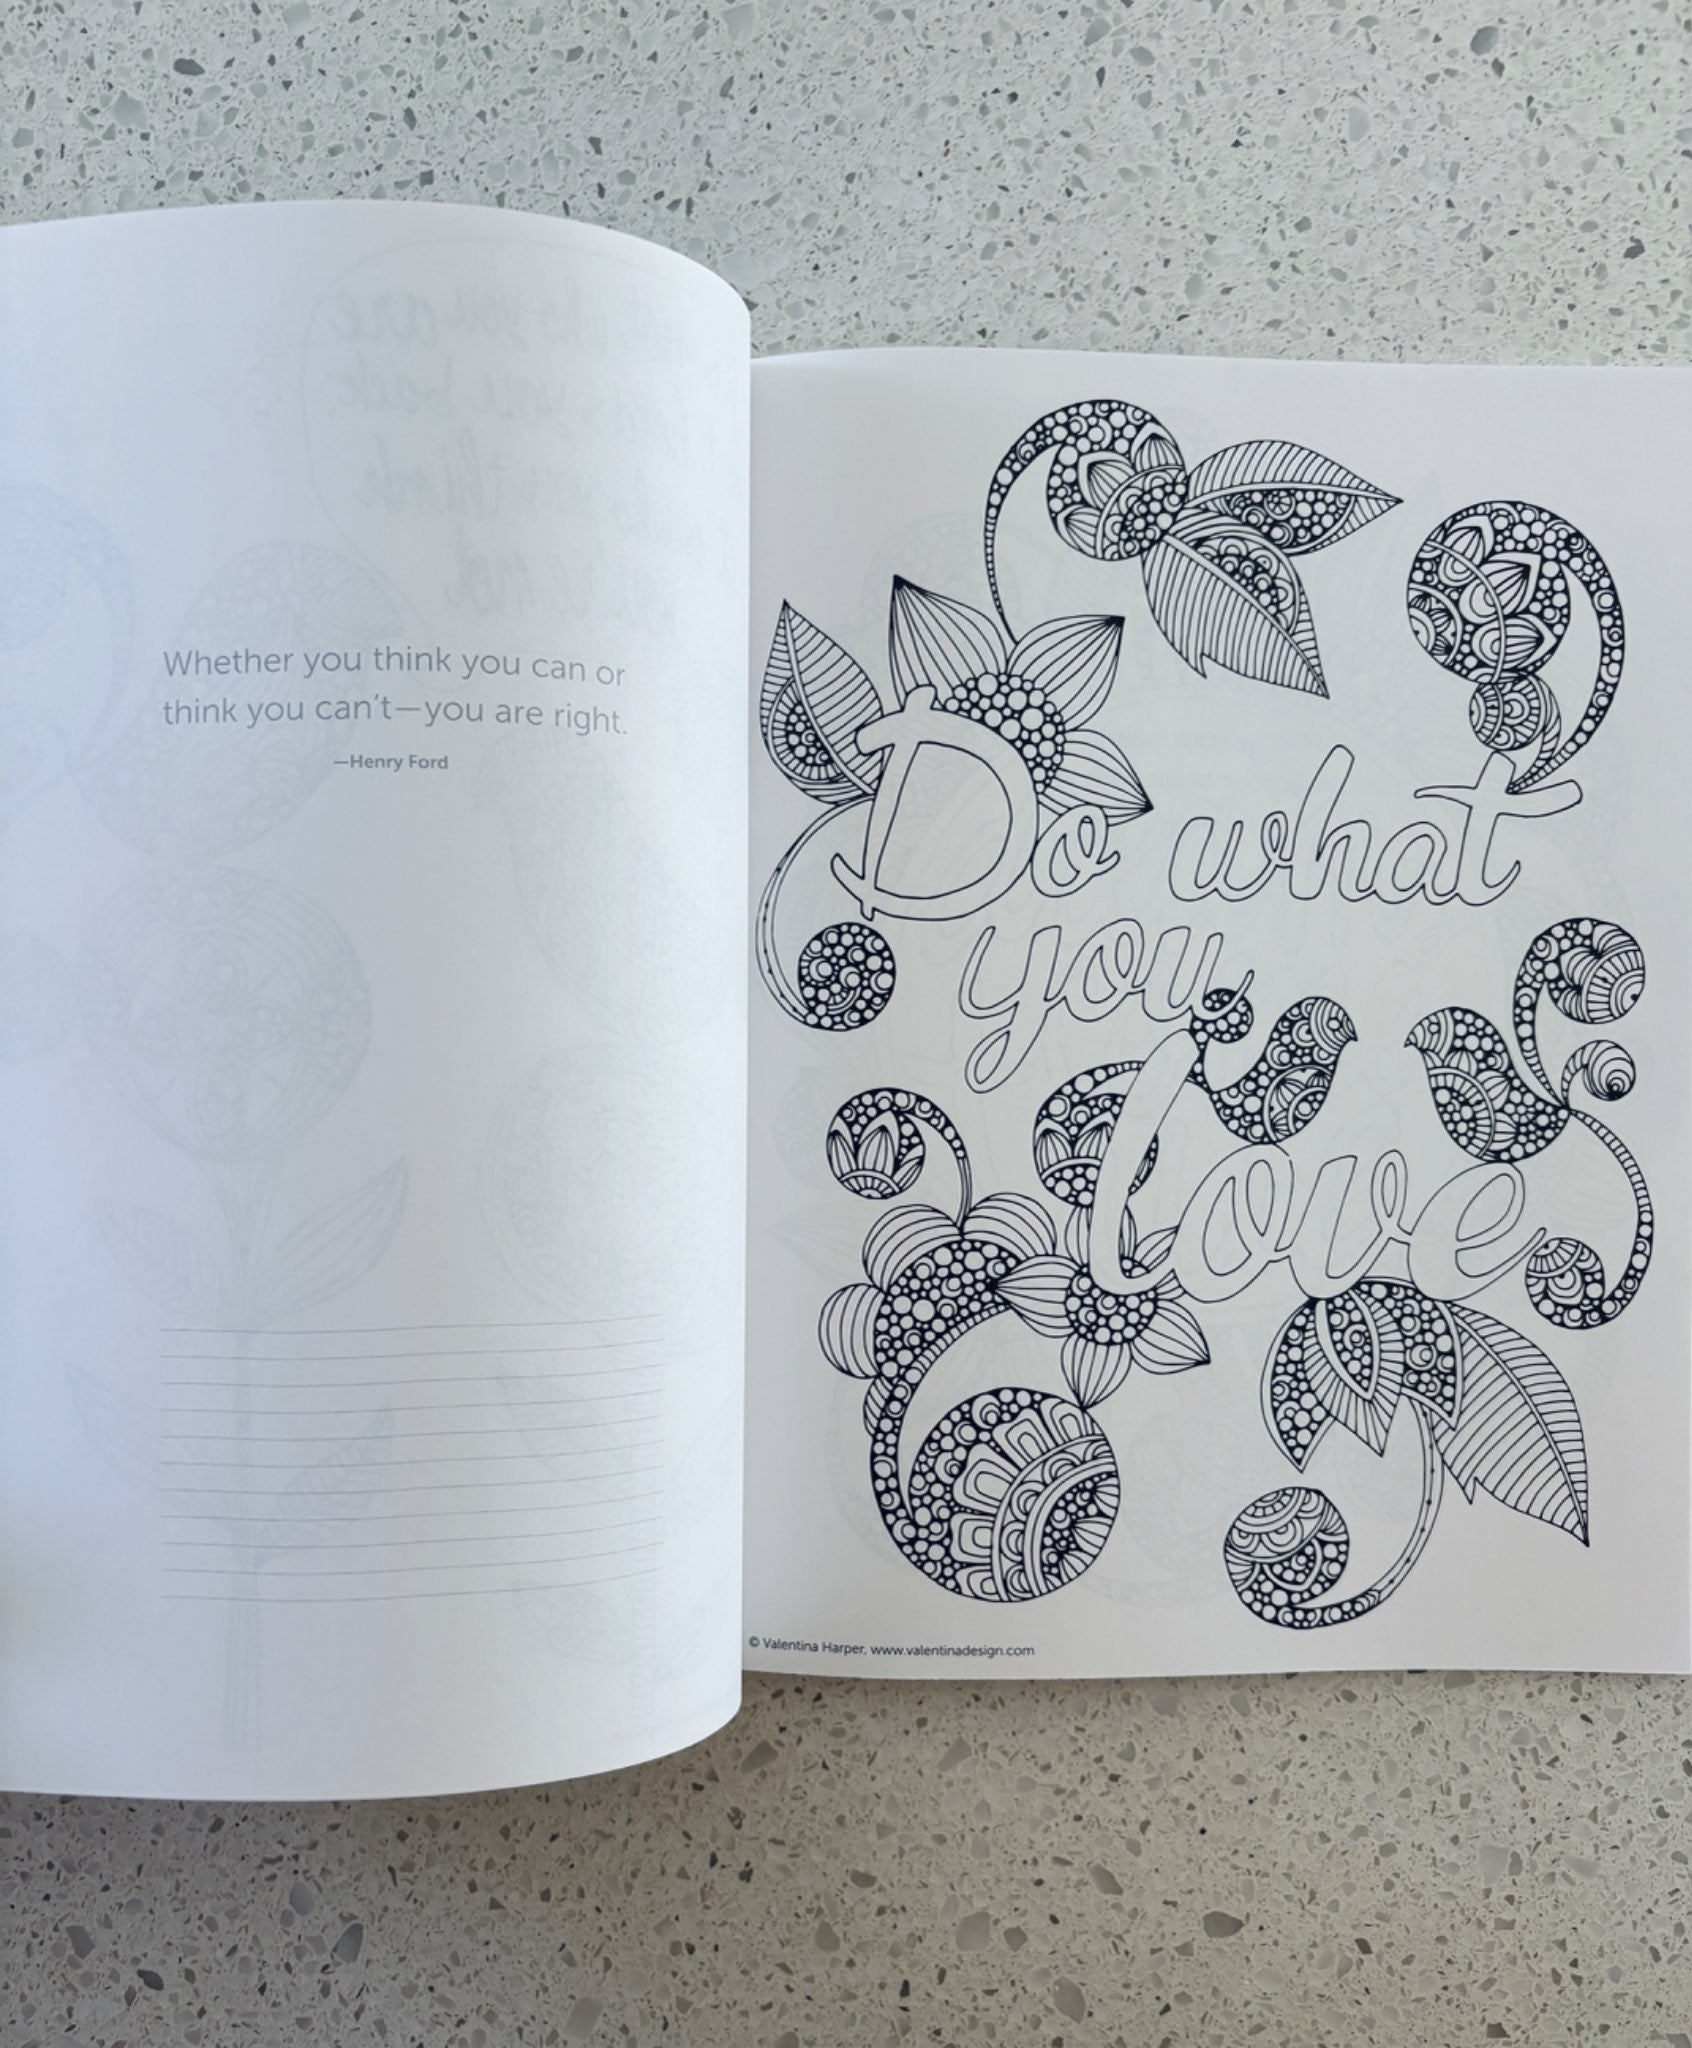 Whether you think you can or
think you can't—you are right.
—Henry Ford
Do what
you
love
© Valentina Harper, www.valentinadesign.com